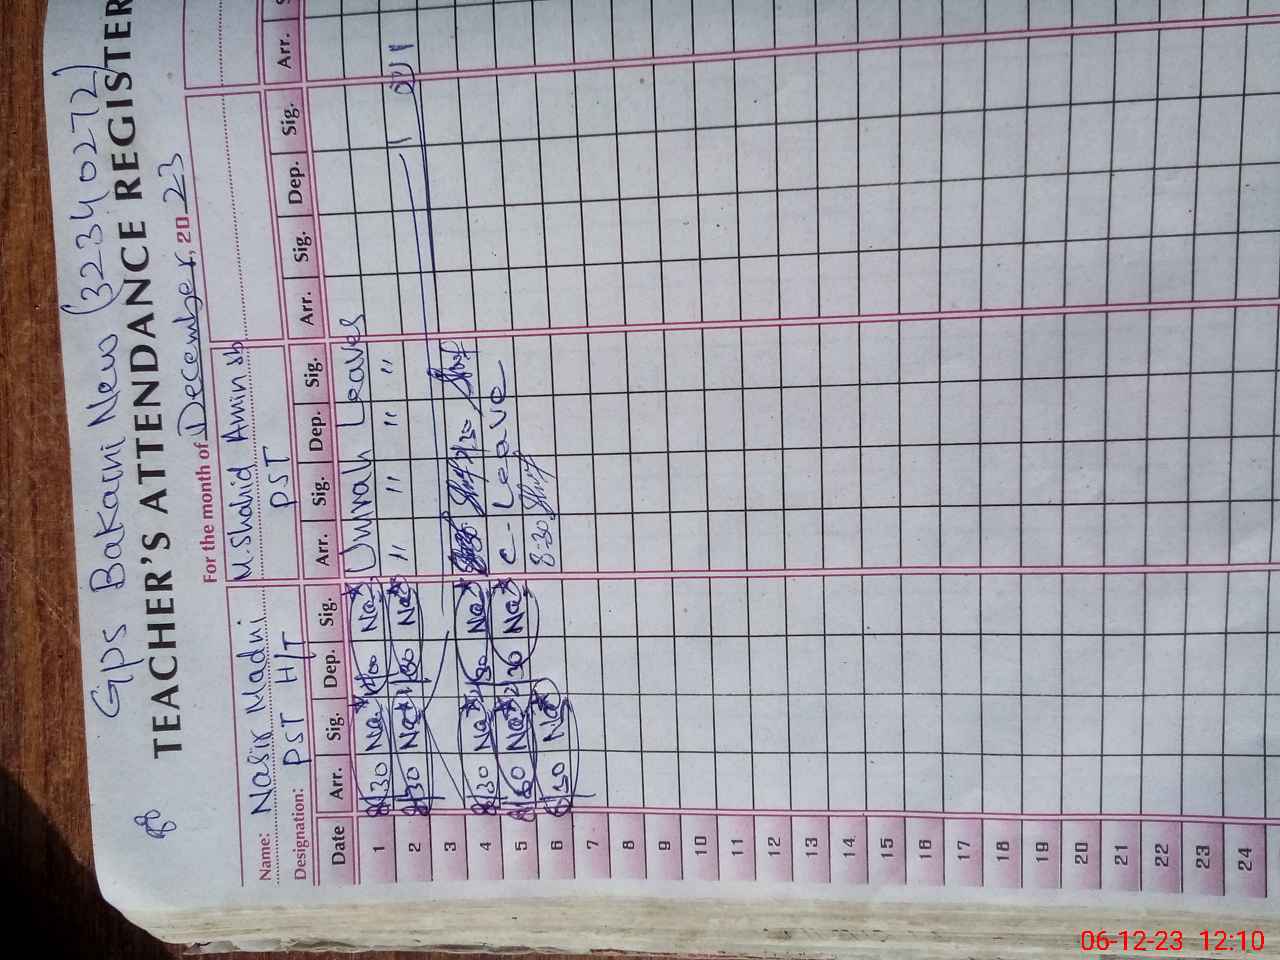 Gps Bakaini New (32340272)
TEACHER'S ATTENDANCE REGISTER
For the month of December, 2023
Name: Nasir Madni M. Shahid Amin sb
Designation: PST H/T PST
Date Arr. Sig. Dep. Sig. Arr. Sig. Dep. Sig. Arr. Sig. Dep. Sig. Arr.
1 8/30 Na 1/00 Na Umrah Leaves
2 8/30 Na 1/30 Na " " " "
3
4 8/30 Na 1/30 Na 8:30 1/30
5 8/30 Na 1/30 Na C-Leave
6 8/30 Na 8:30
7
8
9
10
11
12
13
14
15
16
17
18
19
20
21
22
23
24
06-12-23 12:10